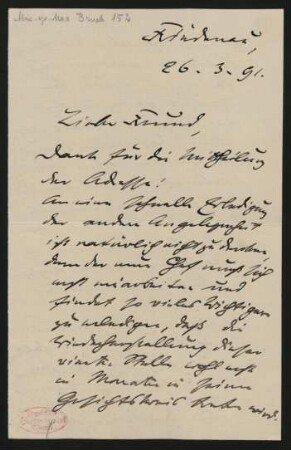 Mus. ep. Max Bruch 154
Friedenau,
26. 3. 91.
Lieber Freund,
Dank für die Mittheilung
der Adresse!
An eine schnelle Erledigung
der anderen Angelegenheit
ist natürlich nicht zu denken,
denn der neue Chef muß sich
erst einarbeiten und
findet so vieles Wichtigere
zu erledigen, daß die
Wiederherstellung dieser
vierten Stelle wohl erst
in Monaten in seinen
Gesichtskreis treten wird.